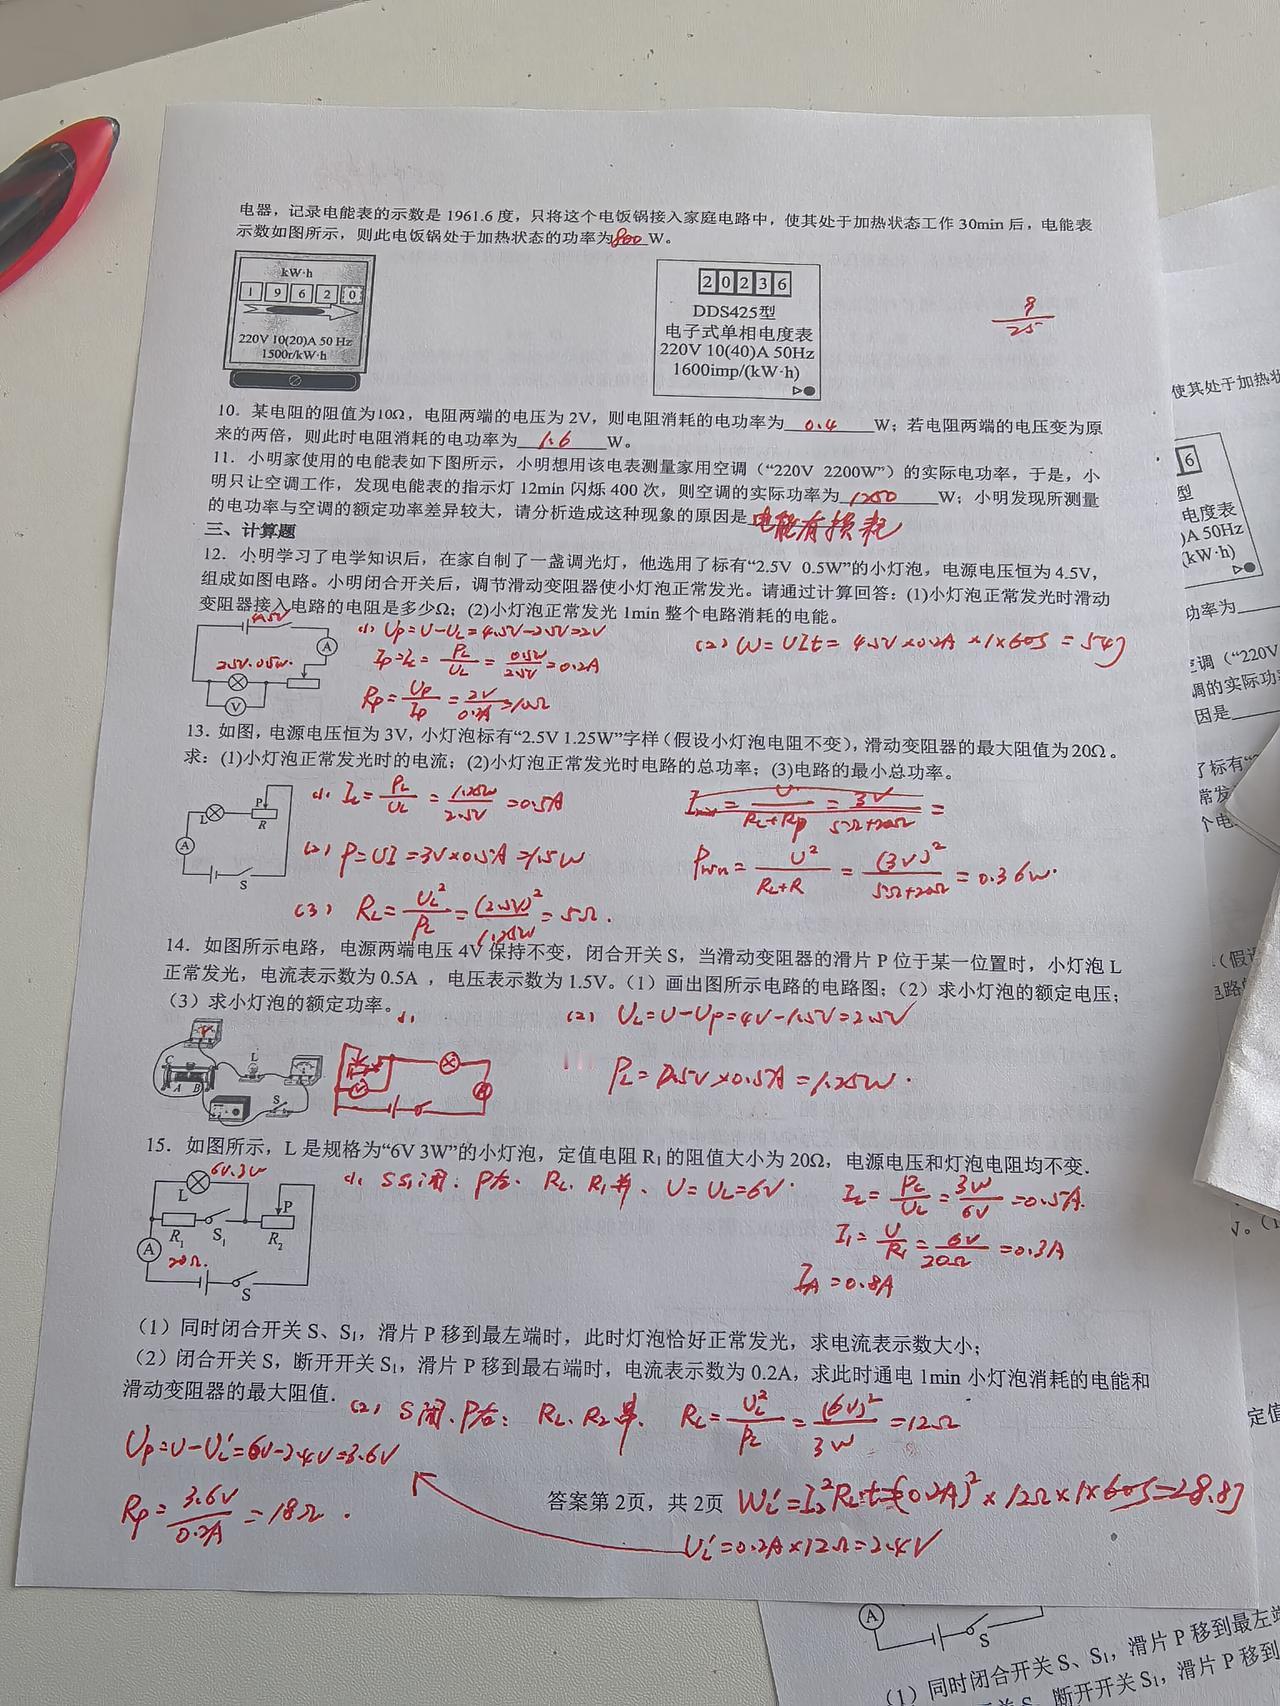 电器，记录电能表的示数是 1961.6 度，只将这个电饭锅接入家庭电路中，使其处于加热状态工作 30min 后，电能表
示数如图所示，则此电饭锅处于加热状态的功率为 800 W。
kW·h
1 9 6 2 0
220V 10(20)A 50 Hz
1500r/kW·h
20236
DDS425型
电子式单相电度表
220V 10(40)A 50Hz
1600imp/(kW·h)
8/25
10．某电阻的阻值为10Ω，电阻两端的电压为 2V，则电阻消耗的电功率为 0.4 W；若电阻两端的电压变为原
来的两倍，则此时电阻消耗的电功率为 1.6 W。
11．小明家使用的电能表如下图所示，小明想用该电表测量家用空调（“220V 2200W”）的实际电功率，于是，小
明只让空调工作，发现电能表的指示灯 12min 闪烁 400 次，则空调的实际功率为 1250 W；小明发现所测量
的电功率与空调的额定功率差异较大，请分析造成这种现象的原因是 电能有损耗
三、计算题
12．小明学习了电学知识后，在家自制了一盏调光灯，他选用了标有“2.5V 0.5W”的小灯泡，电源电压恒为 4.5V，
组成如图电路。小明闭合开关后，调节滑动变阻器使小灯泡正常发光。请通过计算回答：(1)小灯泡正常发光时滑动
变阻器接入电路的电阻是多少Ω；(2)小灯泡正常发光 1min 整个电路消耗的电能。
4.5V
2.5V 0.5W
A
V
(1) Up=U-UL=4.5V-2.5V=2V
Ip=IL=PL/UL=0.5W/2.5V=0.2A
Rp=Up/Ip=2V/0.2A=10Ω
(2) W=UIt=4.5V×0.2A×1×60S=54J
13．如图，电源电压恒为 3V，小灯泡标有“2.5V 1.25W”字样（假设小灯泡电阻不变），滑动变阻器的最大阻值为20Ω。
求：(1)小灯泡正常发光时的电流；(2)小灯泡正常发光时电路的总功率；(3)电路的最小总功率。
L P R A S
(1) IL=PL/UL=1.25W/2.5V=0.5A
(2) P=UI=3V×0.5A=1.5W
(3) RL=UL²/PL=(2.5V)²/1.25W=5Ω.
Imin=U/(RL+Rp)=3V/(5Ω+20Ω)=
Pmin=U²/(RL+R)=(3V)²/(5Ω+20Ω)=0.36W.
14．如图所示电路，电源两端电压 4V 保持不变，闭合开关 S，当滑动变阻器的滑片 P 位于某一位置时，小灯泡 L
正常发光，电流表示数为 0.5A ，电压表示数为 1.5V。（1）画出图所示电路的电路图；（2）求小灯泡的额定电压；
（3）求小灯泡的额定功率。
(1)
(2) UL=U-Up=4V-1.5V=2.5V
PL=2.5V×0.5A=1.25W.
C A B L S
15．如图所示，L 是规格为“6V 3W”的小灯泡，定值电阻 R₁ 的阻值大小为 20Ω，电源电压和灯泡电阻均不变.
6V.3W
L P R₁ S₁ R₂ A S
20Ω.
(1) S S₁闭. P左. RL、R₁并. U=UL=6V.
IL=PL/UL=3W/6V=0.5A.
I₁=U/R₁=6V/20Ω=0.3A
IA=0.8A
（1）同时闭合开关 S、S₁，滑片 P 移到最左端时，此时灯泡恰好正常发光，求电流表示数大小；
（2）闭合开关 S，断开开关 S₁，滑片 P 移到最右端时，电流表示数为 0.2A，求此时通电 1min 小灯泡消耗的电能和
滑动变阻器的最大阻值．
(2) S闭. P右: RL、R₂串. RL=UL²/PL=(6V)²/3W=12Ω
Up=U-UL'=6V-2.4V=3.6V
Rp=3.6V/0.2A=18Ω.
答案第 2页，共 2页
WL'=I²RLt=(0.2A)²×12Ω×1×60S=28.8J
UL'=0.2A×12Ω=2.4V
使其处于加热状
6
型
电度表
)A 50Hz
(kW·h)
功率为
空调（“220V
调的实际功
因是
了标有“
（假设
定值
A S
（1）同时闭合开关 S、S₁，滑片 P 移到最左端
断开开关 S₁，滑片 P 移到